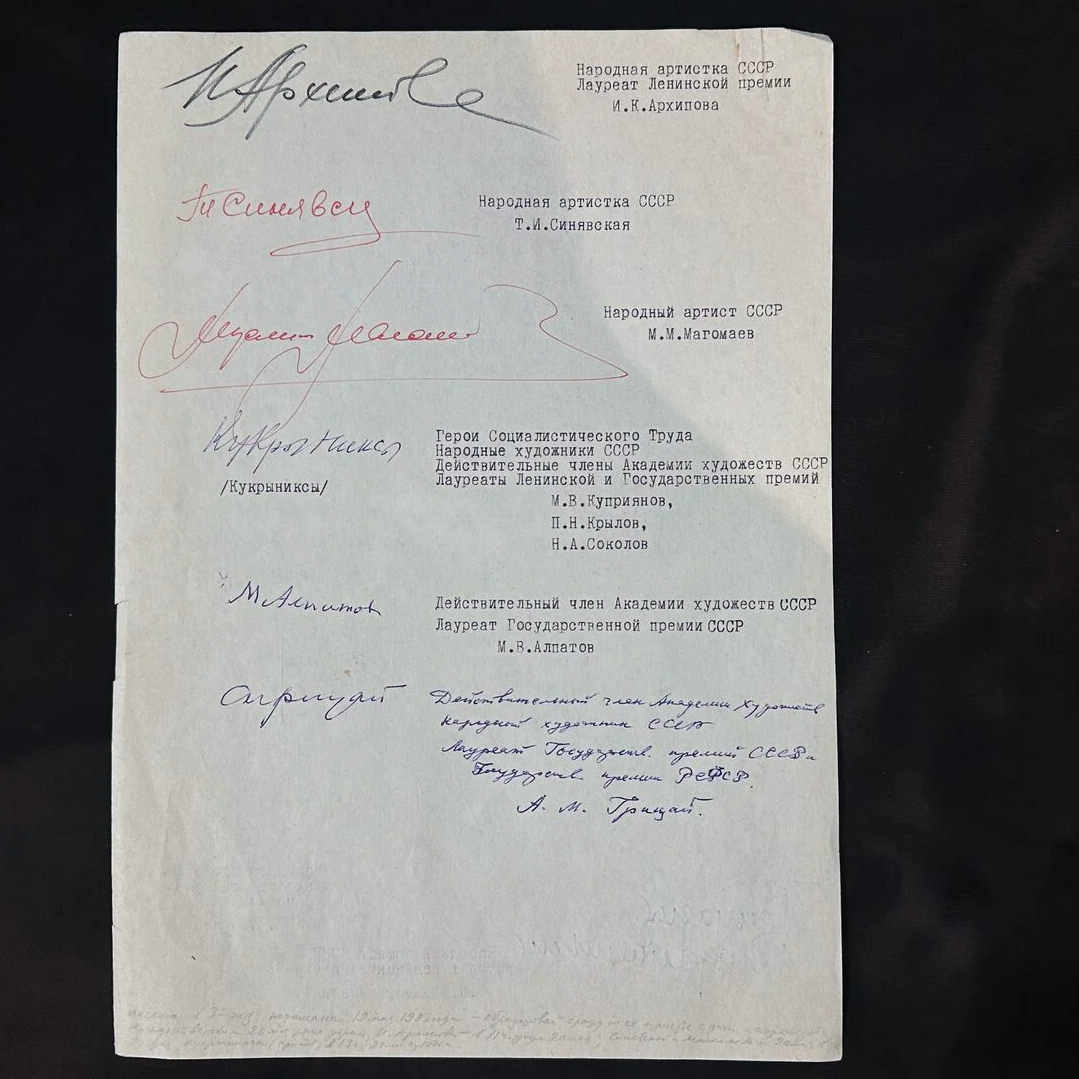 И Архипова
Народная артистка СССР
Лауреат Ленинской премии
И.К.Архипова
Т Синявск
Народная артистка СССР
Т.И.Синявская
Муслим Магомаев
Народный артист СССР
М.М.Магомаев
Кукрыниксы
/Кукрыниксы/
Герои Социалистического Труда
Народные художники СССР
Действительные члены Академии художеств СССР
Лауреаты Ленинской и Государственных премий
М.В.Куприянов,
П.Н.Крылов,
Н.А.Соколов
М Алпатов
Действительный член Академии художеств СССР
Лауреат Государственной премии СССР
М.В.Алпатов
А Грицай
Действительный член Академии Художеств
народный художник СССР
Лауреат Государств. премий СССР и
Государств. премии РСФСР.
А. М. Грицай.